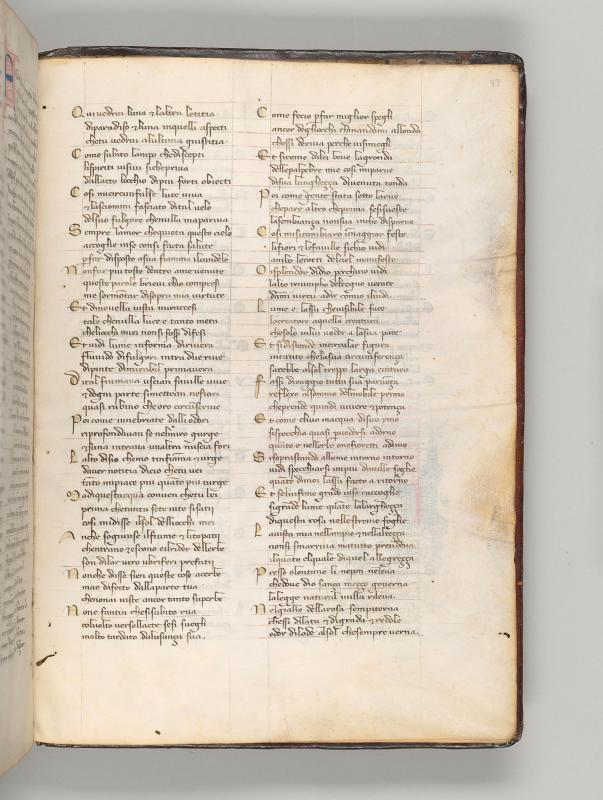 87
Qui vedrai luna & laltra letitia
diparadiso & luna inquelli aspecti
chetu vedrai alultima giustitia
Come subito lampo chediscepti
lispiriti visiui sicheprиua
dallacto lochio dipiu forti obiecti
Cosi micircunfulse luce viua
& lasciommi fasciato dital uelo
delsuo fulgore chenulla mapariua
Sempre lamor chequeta questo cielo
accoglie inse consi facta salute
p far disposto asua fiamma ilcandelo
Non fur piu tosto dentro ame venute
queste parole brieui chio compresi
me sormontar disopra mia virtute
Et dinouella vista miraccesi
tale chenulla luce e tanto mera
cheliocchi miei nonsi fosser difesi
Et uidi lume informa diriuera
fluuido difulgori intra due riue
dipinte dimirabil primauera
Di tal fiumana uscian fauille uiue
& dogni parte simettean nefiori
quasi rubino cheoro circunscriue
Poi come innebriate dalli odori
riprofondauan se nelmiro gurge
& suna intraua unaltra nuscia fori
Lalto disio chemo tinfiamma & urge
dauer notitia dicio chetu uei
tato mipiace piu quato piu turge
Madiquestacqua conuen chetu bei
prima chetanta sete inte sisati
cosi midisse ilsol delliocchi mei
Anche sogiunse ilfiume & litopatii
chentrano & escono elrider dellerbe
son dilor uero ubriferi prefatii
Nonche dasse sien queste cose acerbe
mae difecto dallaparte tua
chenonai uiste ancor tanto superbe
None fantin chesisubito rua
coluolto versollacte sesi suegli
molto tardato dalusanza sua.
Come fecio p far miglior spegli
ancor degliocchi chinandomi allonda
chessi deriua perche uisimegli
Et sicome dilei beue lagronda
dellepalpebre mie cosi mparue
disua lunghezza diuenuta tonda
Poi come gente stata sotto larue
chepare altro cheprima sesisueste
lasembianza nonsua inche disparue
Cosi misicambiaro inmaggior feste
lifiori & lefauille sichio uidi
ambo lecorti delciel manifeste
O isplendor didio perchuio uidi
lalto triumpho delregno uerace
dammi uirtu adir como iluidi
Lume e lassu cheuisibile face
locreatore aquella creatura
chesolo inlui veder a lasua pace
Et sidistende incircular figura
intanto chelasua circunferenza
sarebbe alsol troppo larga cintura
Fassi diraggio tutta sua paruenza
reflexo alsommo delmobile primo
cheprende quindi uiuere & potenza
Et come cliuo inacqua disuo ymo
sispecchia quasi puedersi adorno
quato e nellerbe onefioretti adimo
Si soprastando allume intorno intorno
uidi specchiarsi impiu dimille soglie
quato danoi lassu facto a ritorno
Et selinfimo grado inse raccoglie
sigrade lume quate lalarghezza
diquesta rosa nellestreme foglie
Lauista mia nellampio & nellaltezza
nonsi smarriua matutto prendeua
ilquato elquale diquel allegrezza
Presso olontano li nepon neleua
chedoue dio sanza mezzo gouerna
lalegge natural nulla rileua.
Nelgiallo dellarosa sempiterna
chessi dilata & digrada & redole
odor dilode alsol chesempre uerna.